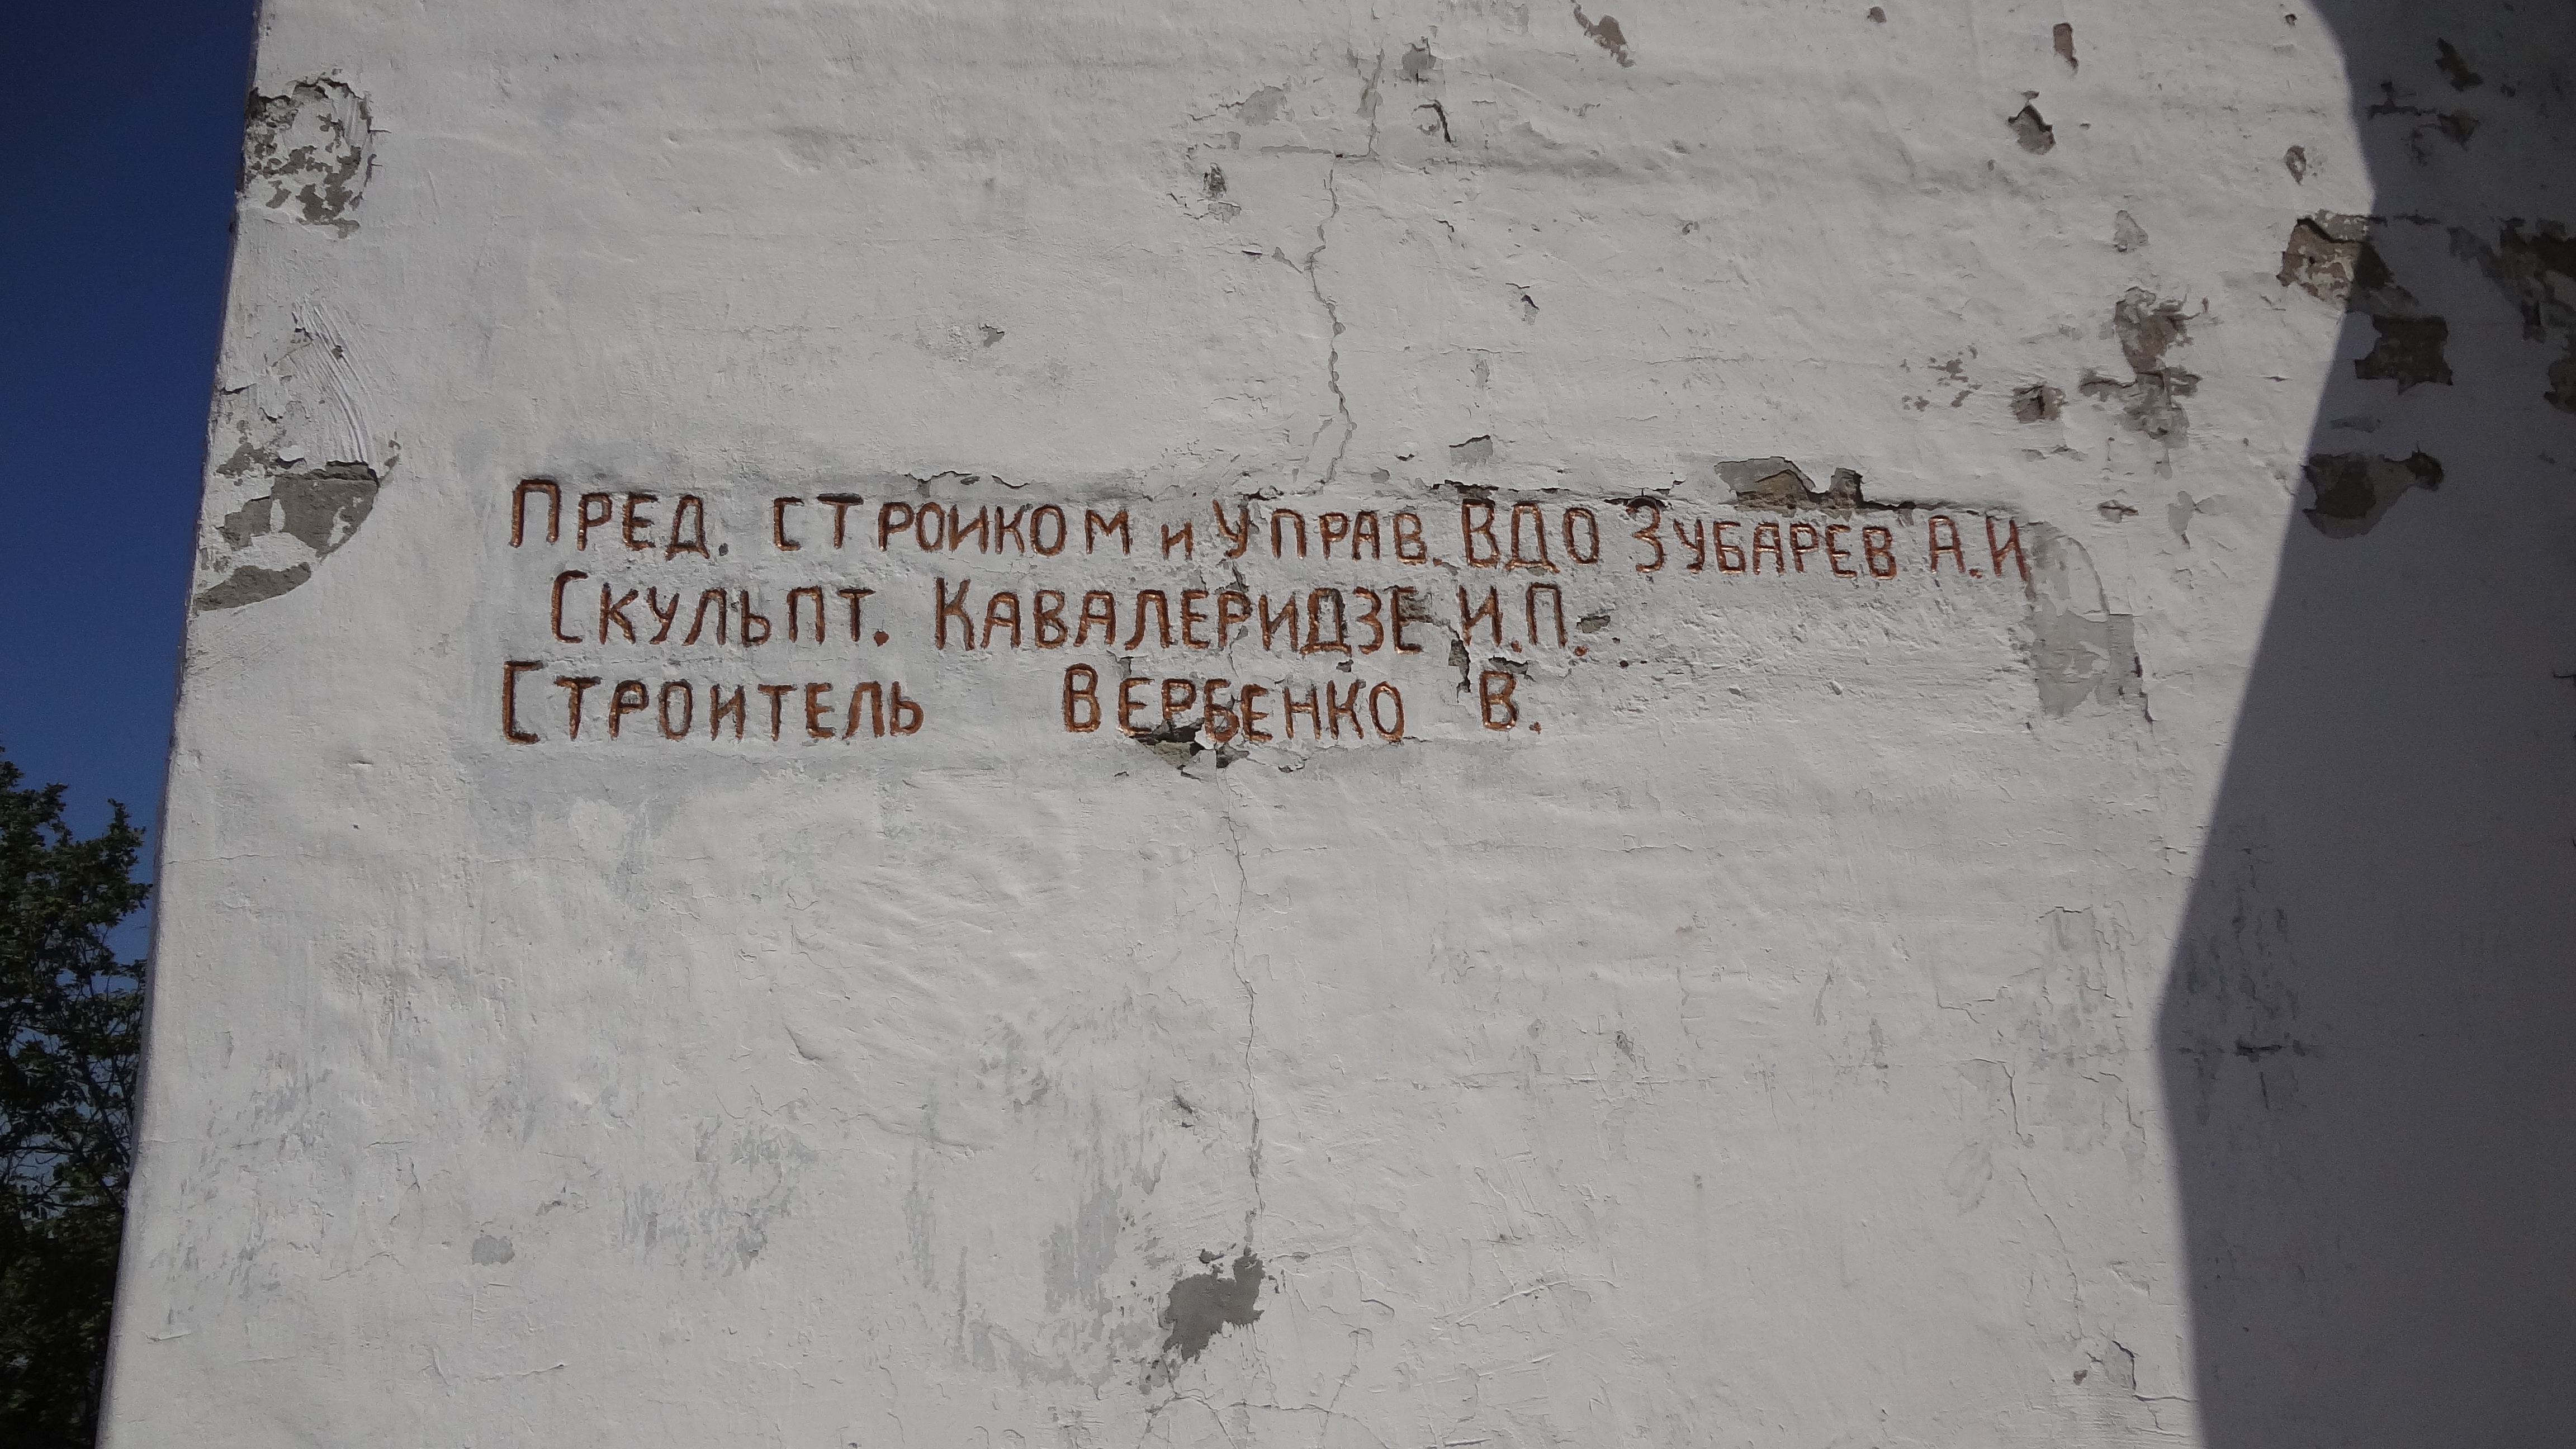 Пред. стройком и управ. ВДО Зубарев А.И
Скульпт. Кавалеридзе И.П.
Строитель Вербенко В.